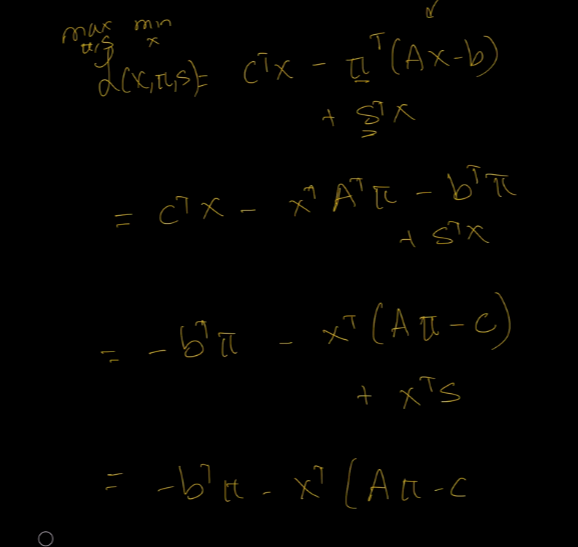 max min
π,s x
L(x,π,s) = cᵀx - πᵀ(Ax-b)
+ sᵀx
= cᵀx - xᵀAᵀπ - bᵀπ
+ sᵀx
= -bᵀπ - xᵀ(Aπ-c)
+ xᵀs
= -bᵀπ - xᵀ(Aπ-c